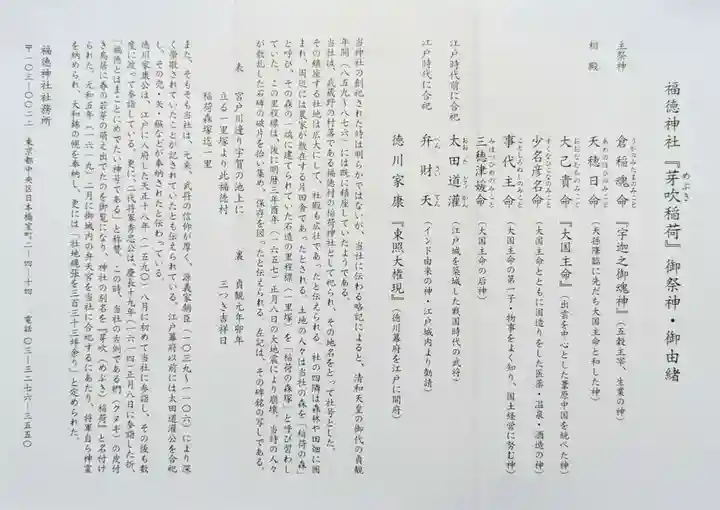 福徳神社『芽吹稲荷』御祭神・御由緒
めぶき
主祭神
倉稲魂命『宇迦之御魂神』(五穀主宰、生業の神)
うかのみたまのみこと
相殿
天穂日命(天孫降臨に先だち大国主命と和した神)
あめのほひのみこと
大己貴命『大国主命』(出雲を中心とした葦原中国を統べた神)
おおなむちのみこと
少名彦名命(大国主命とともに国造りをした医薬・温泉・酒造の神)
すくなひこなのみこと
事代主命(大国主命の第一子・物事をよく知り、国土経営に努む神)
ことしろぬしのみこと
三穂津媛命(大国主命の后神)
みほつひめのみこと
江戸時代前に合祀
太田道灌(江戸城を築城した戦国時代の武将)
おおたどうかん
江戸時代に合祀
弁財天(インド由来の神・江戸城内より勧請)
べんざいてん
徳川家康『東照大権現』(徳川幕府を江戸に開府)
当神社の創祀された時は明らかではないが、当社に伝わる略記によると、清和天皇の御代の貞観
年間(八五九~八七六)には既に鎮座していたようである。
当社は、武蔵野の村落である福徳村の稲荷神社として祀られ、その地名をとって社号とした。
その鎮座する社地は広大にして、社殿も広壮であったと伝えられる。社の四隣は森林や田畑に囲
まれ、周辺には農家が散在する片田舎であったとされる。土地の人々は当社の森を「稲荷の森」
と呼び、その森の一端に建てられていた石造りの里程標(一里塚)を「稲荷の森塚」と呼び習わし
ていた。この里程標は、後に明暦三年酉年(一六五七)正月八日の大地震により崩壊。当時の人々
が散乱した石碑の破片を拾い集め、保存を図ったと伝えられる。左記は、その碑銘の写しである。
表 宮戸川邉り宇賀の池上に
立る一里塚より此福徳村
稲荷森塚迄一里
裏 貞観元年卯年
三つき吉祥日
また、そもそも当社は、元来、武将の信仰が厚く、源義家朝臣(一〇三九~一一〇六)により深
く崇敬されていたことが記されていたとも伝えられている。江戸幕府以前には太田道灌公を合祀
し、その兜・矢・鏃などが奉納されたと伝わっている。
徳川家康公は、江戸に入府した天正十八年(一五九〇)八月に初めて当社に参詣し、その後も数
度に渡って参詣している。更に、二代将軍秀忠公は、慶長十九年(一六一四)正月八日に参詣した折、
「福徳とはまことにめでたい神号である」と称賛、この時、当社の古例である椚(クヌギ)の皮付
き鳥居に春の若芽の萌え出でたのを御覧になり、神社の別名を『芽吹(めぶき)稲荷』と名付け
られた。元和五年(一六一九)二月に御城内の弁天宮を当社に合祀するにあたり、将軍自ら神霊
を納められ、大和錦の幌を奉納し、更には「社地縄張を三百三十三坪余り」と定められた。
福徳神社社務所
〒一〇三-〇〇二二 東京都中央区日本橋室町二-四-十四 電話〇三-三二七六-三五五〇